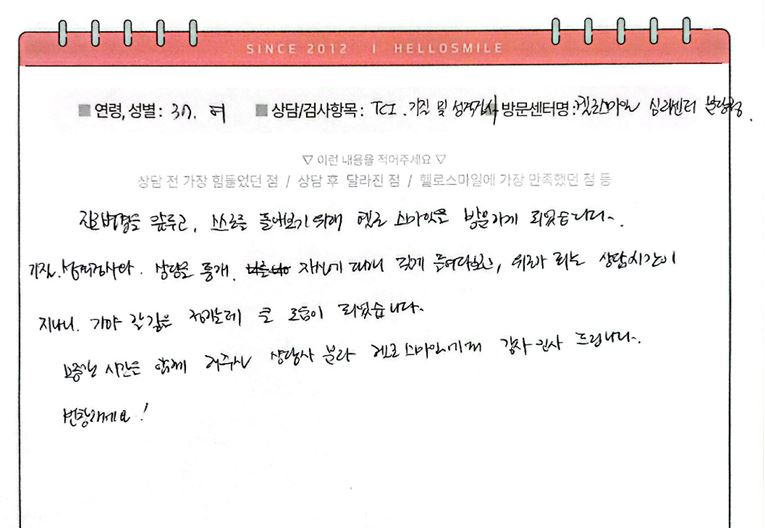 SINCE 2012 | HELLOSMILE
■ 연령, 성별 : 37. 여 ■ 상담/검사항목 : TCI. 기질 및 성격검사 방문센터명 : 헬로스마일 심리센터 분당점.
▽ 이런 내용을 적어주세요 ▽
상담 전 가장 힘들었던 점 / 상담 후 달라진 점 / 헬로스마일에 가장 만족했던 점 등
진로변경을 앞두고, 스스로를 돌아보기 위해 헬로 스마일을 방문하게 되었습니다.
기질.성격검사와. 상담을 통해, 자신에 대해 깊게 들여다보고, 위로가 되는 상담시간이
지나니. 가야 할 길을 정하는데 큰 도움이 되었습니다.
소중한 시간을 함께 해주신 상담사 분과 헬로스마일에게 감사 인사 드립니다.
번창하세요!